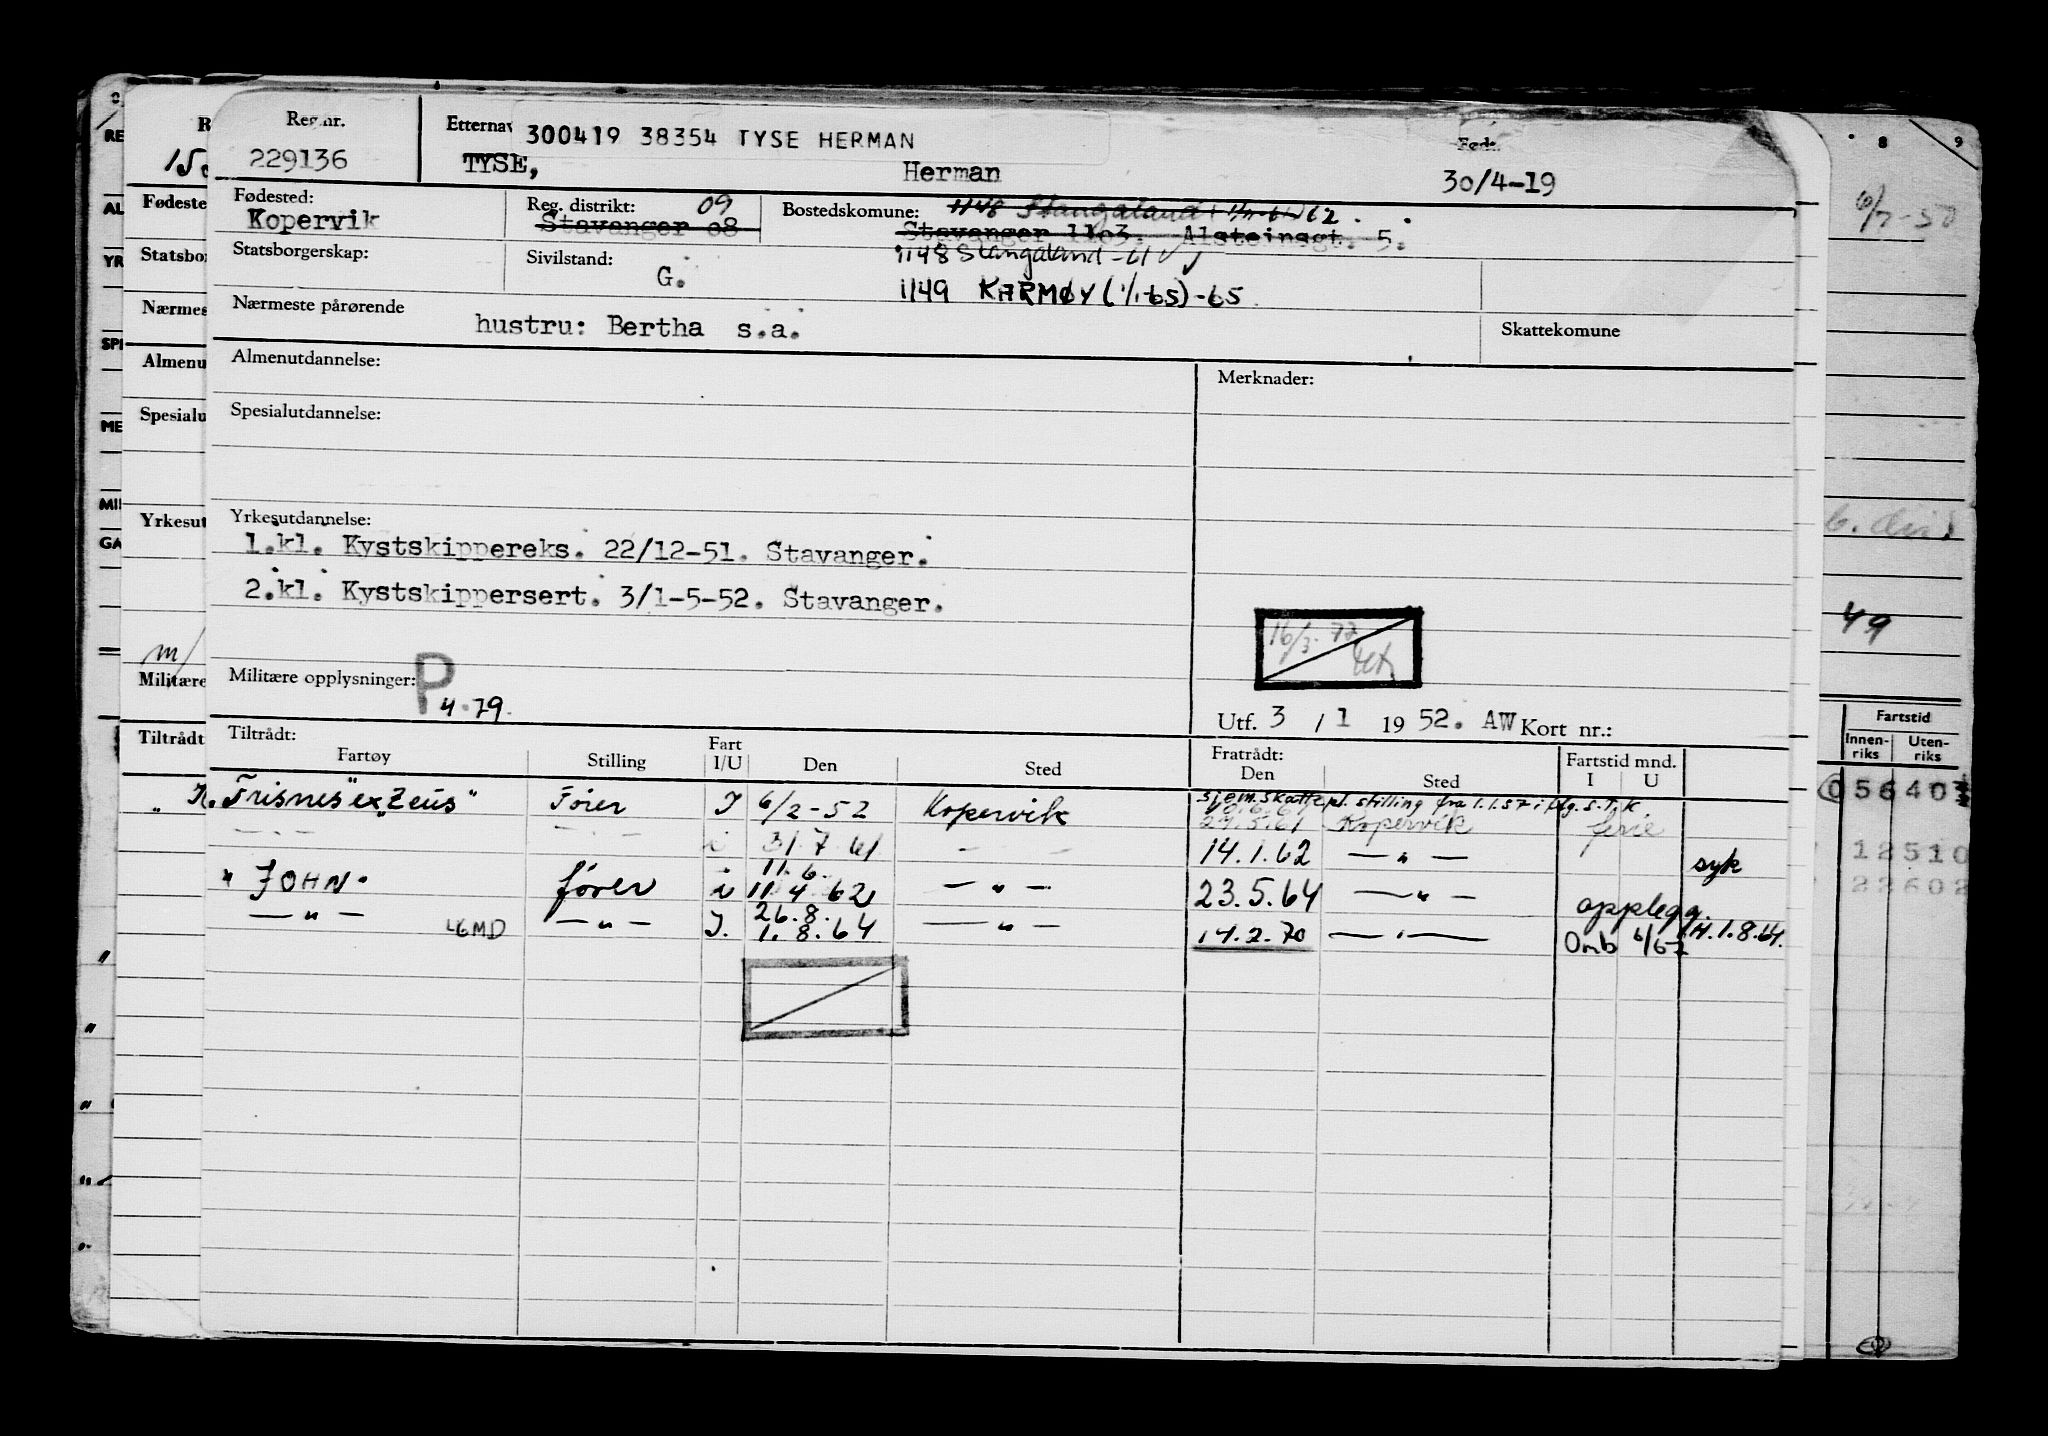 Reg.nr. Etternav 300419 38354 TYSE HERMAN Født:
229136 TYSE, Herman 30/4-19
Fødested: Reg. distrikt: 09 Bostedskomune: 1148 Stangaland 62
Kopervik Stavanger 08 Stavanger 1103. Alsteinsgt. 5.
Statsborgerskap: Sivilstand: 1148 Stangaland -61
G. 1149 KARMØY (1/1-65) -65
Nærmeste pårørende hustru: Bertha s.a. Skattekomune
Almenutdannelse: Merknader:
Spesialutdannelse:
Yrkesutdannelse:
1.kl. Kystskippereks. 22/12-51. Stavanger.
2.kl. Kystskippersert. 3/1-5-52. Stavanger.
16/3-72
Militære opplysninger: P
4.79.
Utf. 3 / 1 1952. AW Kort nr.:
Tiltrådt: Fratrådt:
Fartøy Stilling Fart I/U Den Sted Den Sted Fartstid mnd. I U
sjøm.skattepl. stilling fra 1.1.57
"K. Trisnes" ex "Zeus" Fører I 6/2-52 Kopervik 29.5.61 Kopervik ferie
— " — — " — i 31.7.61 — " — 14.1.62 — " — syk
11.6.
" JOHN " fører i 11.4.62 — " — 23.5.64 — " — opplegg.
26.8.
— " — LGMD — " — I. 1.8.64 — " — 14.2.70 — " — Omb 6/67 H.1.8.64.
8 9
6/7-50
49
Fartstid
Innen-riks Uten-riks
056407
12510
22602
Fødeste
Statsbor
Nærmes
Almenu
Spesialu
Yrkesut
Militære
Tiltrådt
RE
AL
YR
SPE
ME
MIL
GA